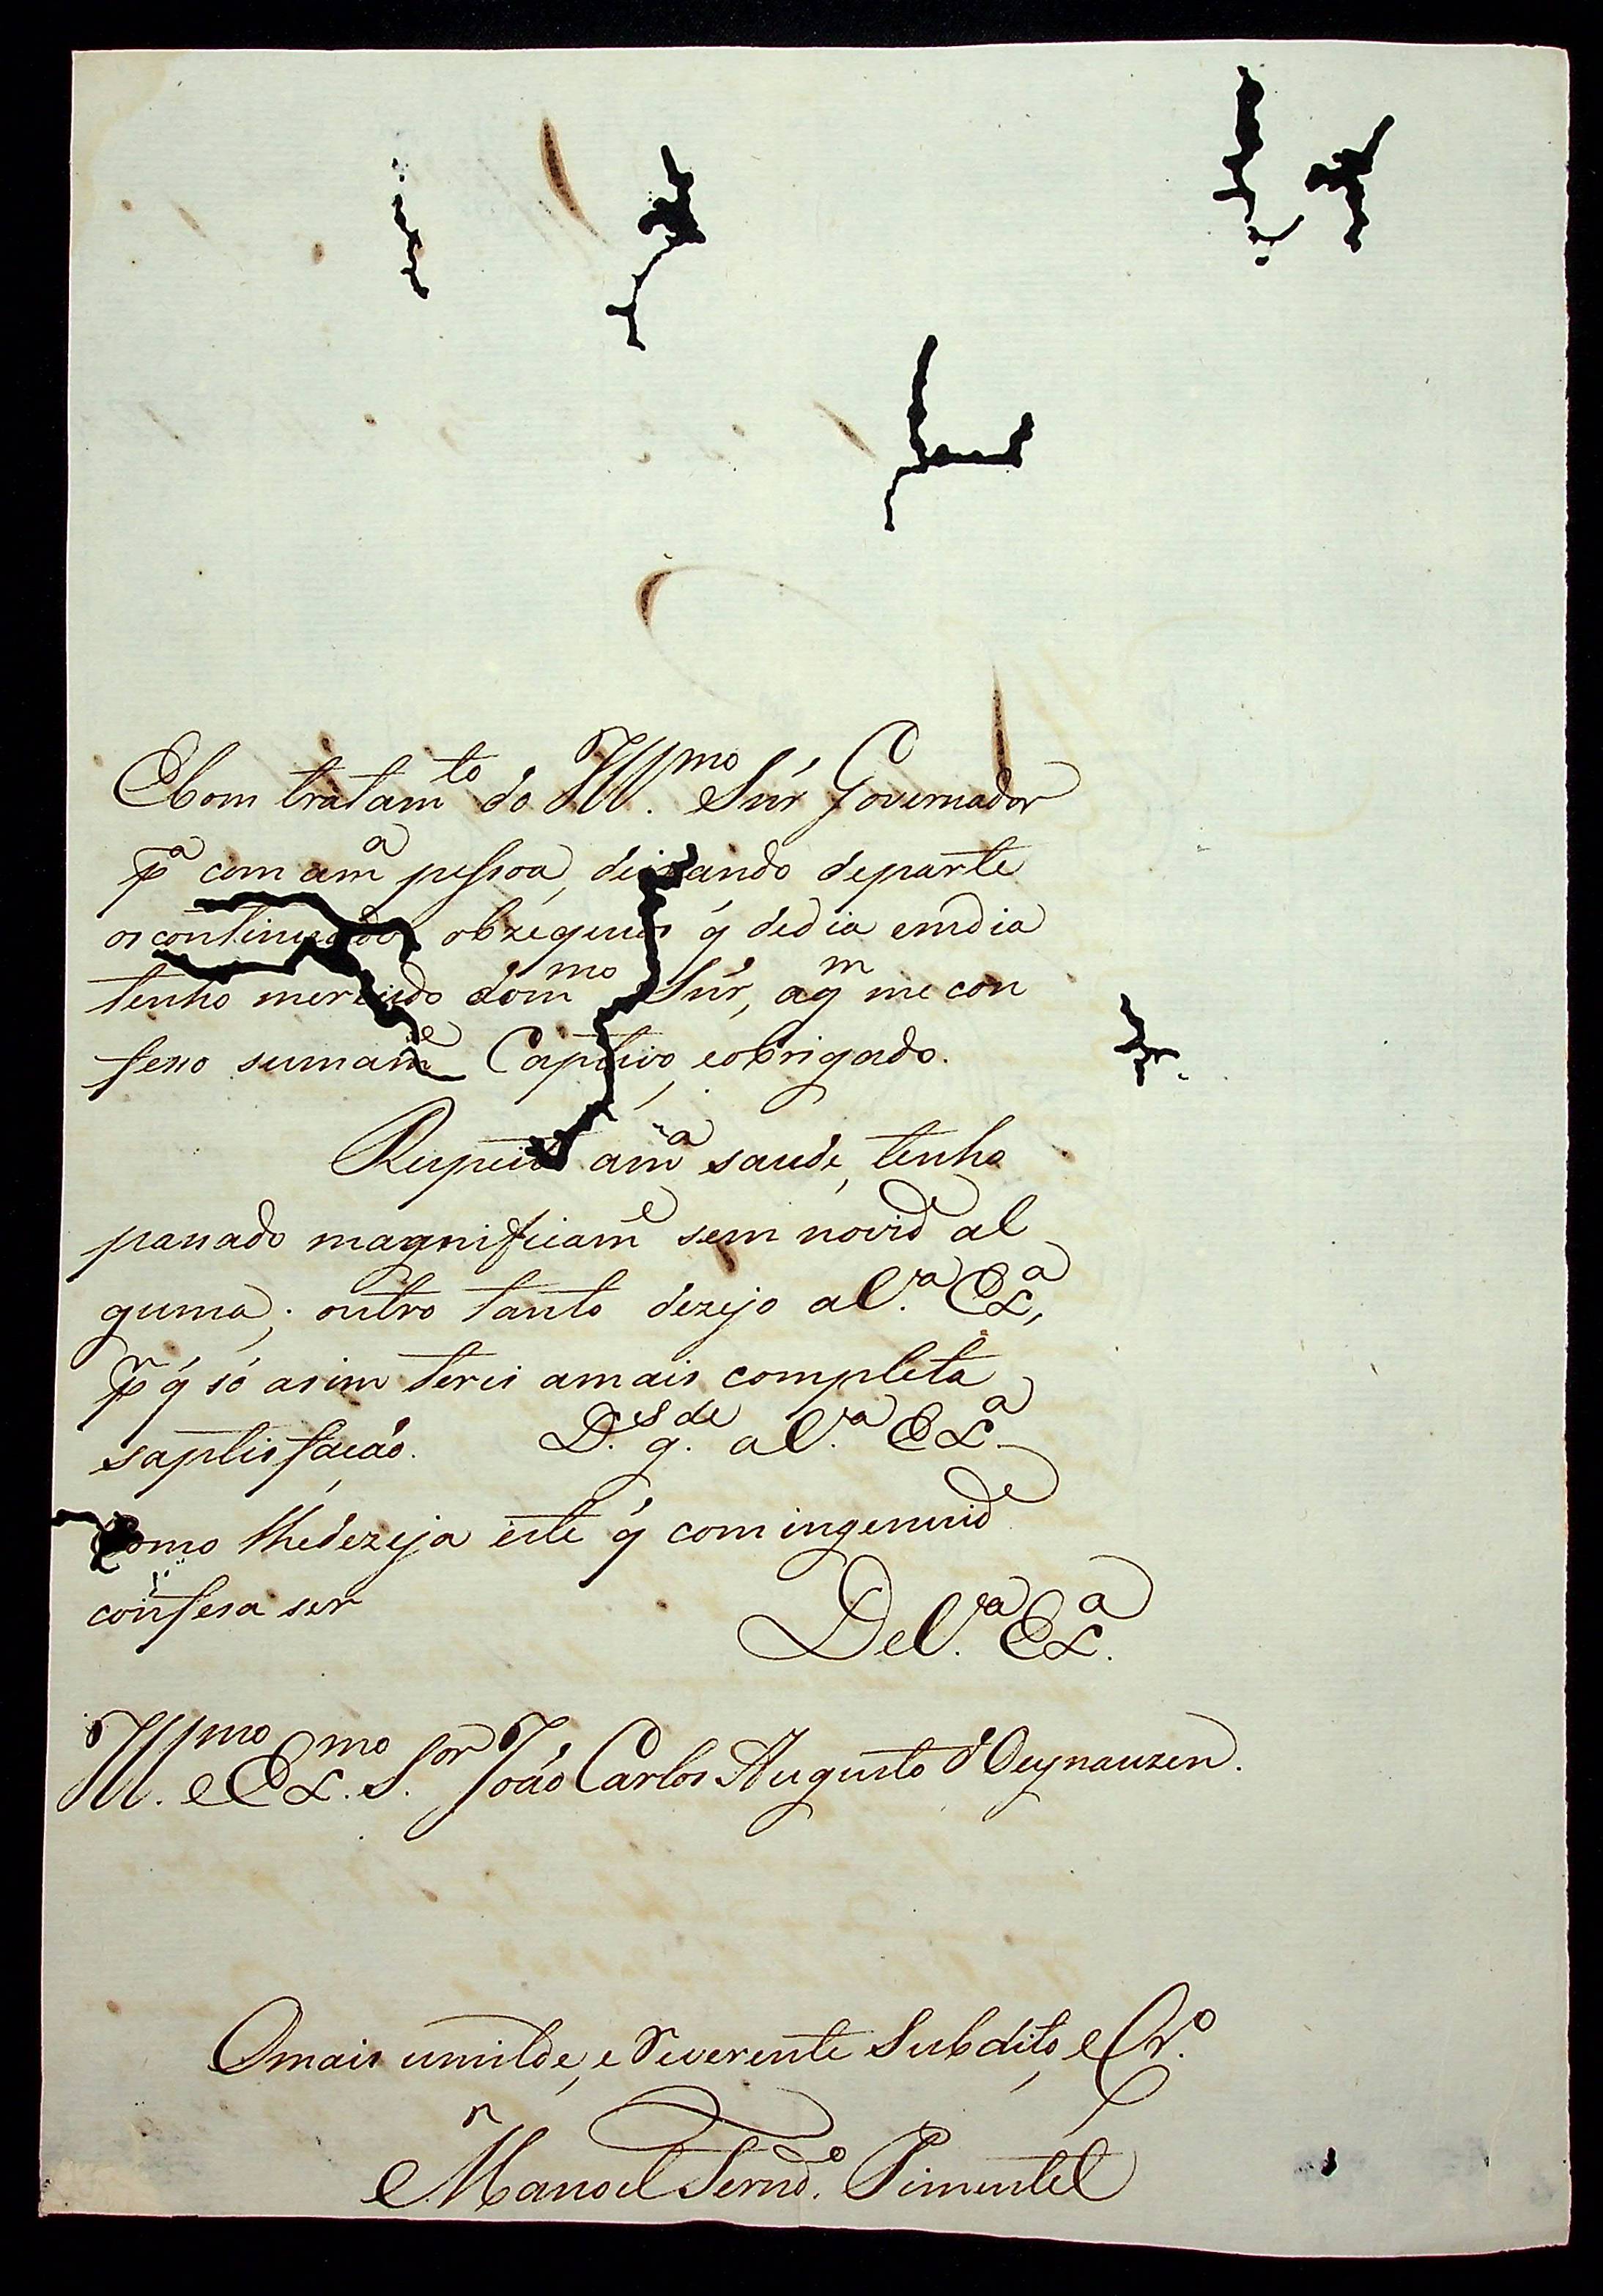 Ebom tratam.to do Ill.mo Snr' Governador
p.a com am.a pessoa, deixando departe
oscontinuados obzequios q' dedia emdia
tenho merecido dom.mo Snr', aq.m me con
fesso sumam.e Captivo, eobrigado.
Respeito am.a saude, tenho
passado magnificam.e sem novid.e al
guma; outro tanto dezejo aV.a Ex.a,
p.r q' só asim terei amais completa
saptisfação. D.s g.de aV.a Ex.a
Como lhedezeja este q' com ingenuid.e
confesa ser
DeV.a Ex.a
Ill.mo eEx.mo S.or João Carlos Augusto d'Oeynauzen.
Omais umilde, e Reverente Subdito, eCr.o
Manoel Fernd.o Pimentel